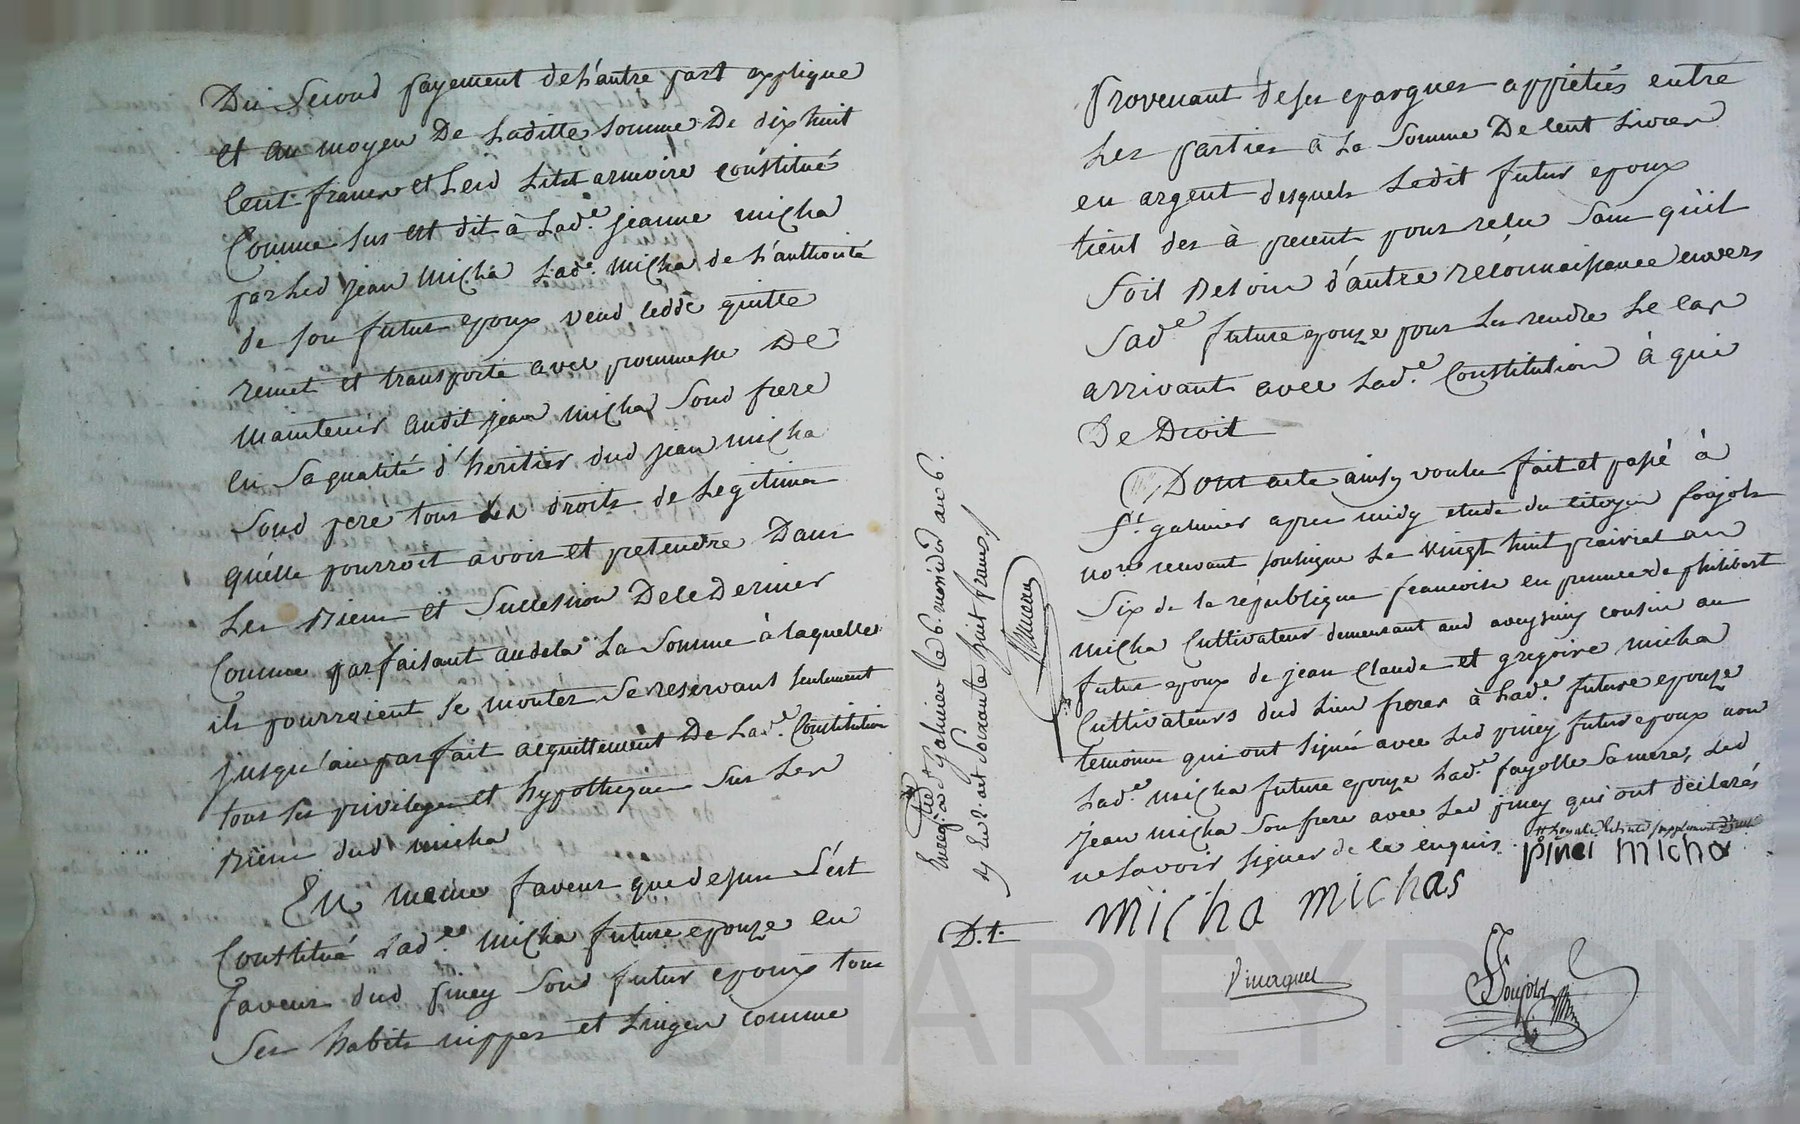 Du second payement de l'autre part expliqué
et au moyen De Laditte somme De dix huit
Cent francs et Led Lit et armoire constitué
Comme sus est dit à Lad.e jeanne micha
par Led jean micha Lad.e micha de L'authorité
de son futur epoux vend cedde quitte
remet et transporte avec promesse De
maintenir audit jean micha Sond frere
en Sa qualité d'heritier dud jean micha
Sond pere tous Les droits de Legitime
qu'elle pourroit avoir et pretendre Dans
Les Biens et Succession De ce Dernier
Comme parfaisant audela La Somme à laquelle
ils pourroient se monter Se reservant seulement
jusqu'au parfait acquittement De La d.e Constitution
tous ses privileges et hypotheques Sur Les
Biens dud micha
En meme faveur que dessus S'est
Constitué Lad.e micha future epouze en
faveur dud piney Sond futur epoux tous
Ses habits nippes et Linges comme
provenant de ses epargnes apprétiés entre
Les parties à La Somme De Cent Livres
en argent desquels Ledit futur epoux
tient des à present pour reçu Sans qu'il
Soit Besoin d'autre reconnaissance envers
Sad.e future epouze pour Les rendre Le cas
arrivant avec Lad.e Constitution à qui
De Droit
Dont acte ainsy voulu fait et passé à
S.t galmier apres midy etude du citoyen Soujols
no.re recevant soussigné Le vingt huit prairial an
Six de la république francoise en presence de philibert
micha Cultivateur demeurant aud aveyzieu cousin au
futur epoux de jean Claude et gregoire micha
Cultivateurs dud Lieu freres à Lad.e future epouze
temoins qui ont signé avec Led piney futur epoux non
Lad.e micha future epouze Lad.e fayolle Sa mere, Led
jean micha Son frere avec Led piney qui ont déclarés
ne Savoir signer de ce enquis
pinei micha
micha michas
D.t.
Soujols
Enreg.é à S.t galmier le 6. messidor an 6.
soixante huit francs
CHAREYRON